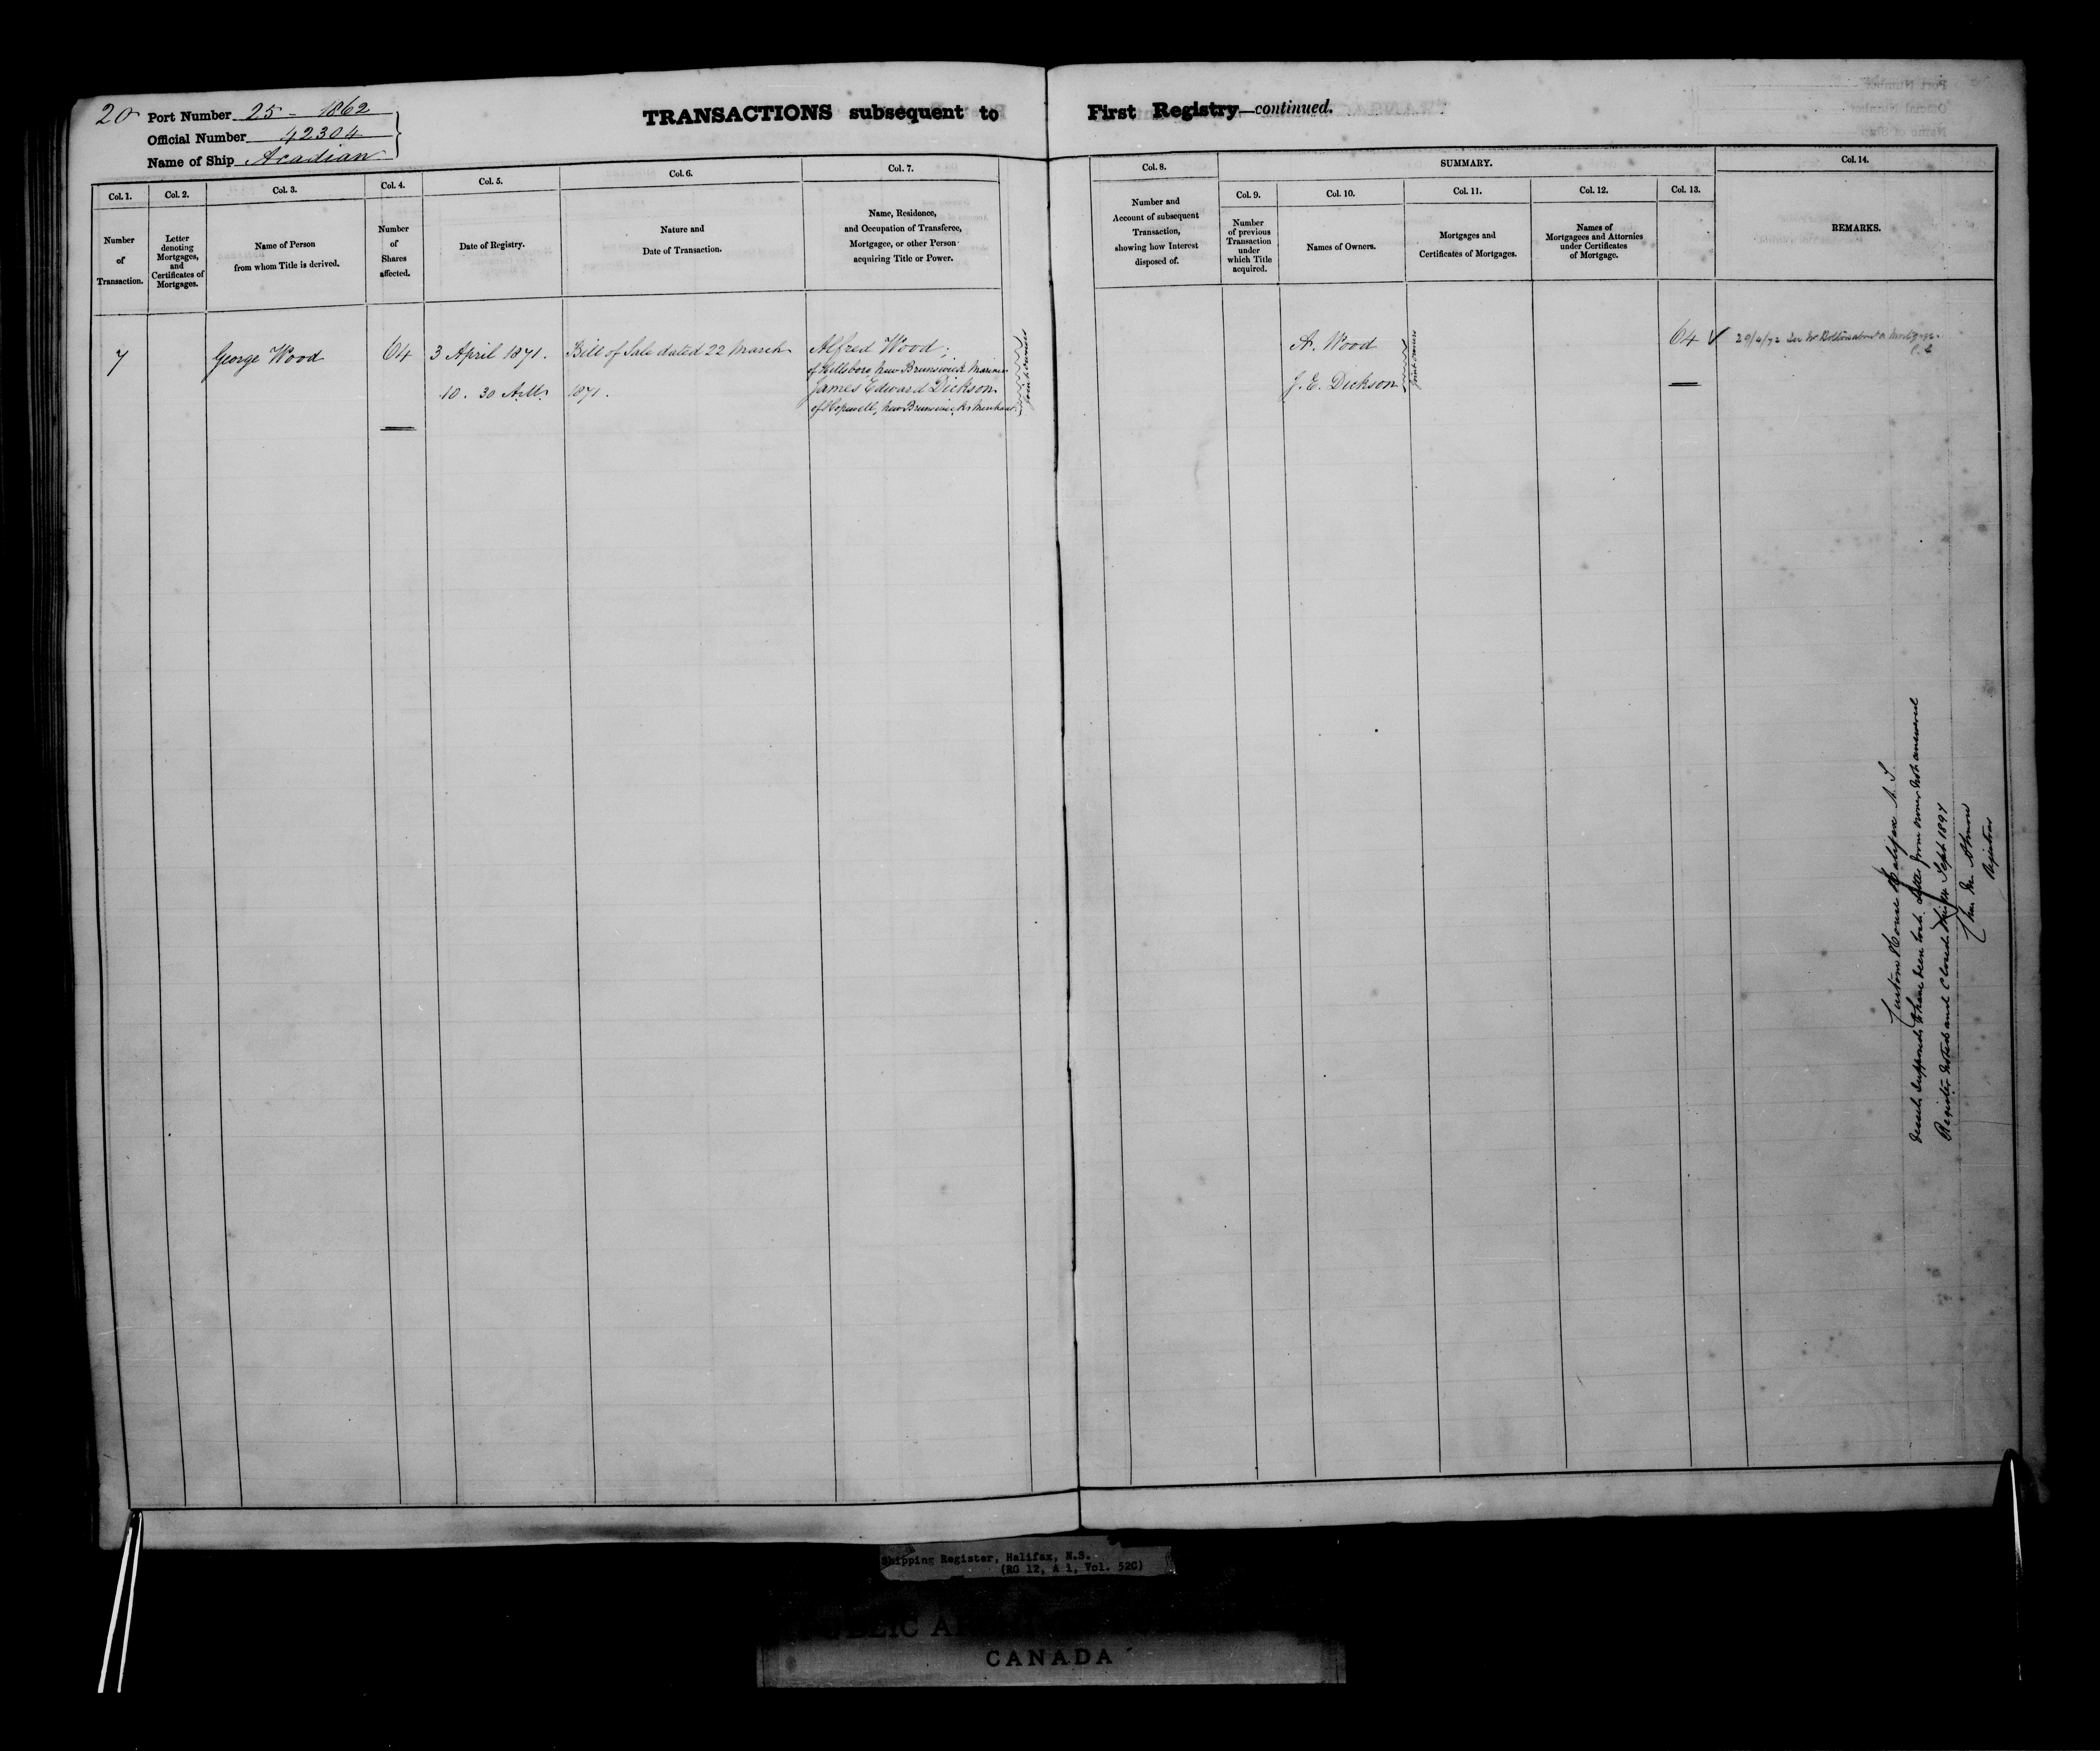 20
Port Number 25 - 1862
Official Number 42304
Name of Ship Acadian
TRANSACTIONS subsequent to First Registry—continued.
Col. 1.
Number
of
Transaction.
Col. 2.
Letter
denoting
Mortgages,
and
Certificates of
Mortgages.
Col. 3.
Name of Person
from whom Title is derived.
Col. 4.
Number
of
Shares
affected.
Col. 5.
Date of Registry.
Col. 6.
Nature and
Date of Transaction.
Col. 7.
Name, Residence,
and Occupation of Transferee,
Mortgagee, or other Person
acquiring Title or Power.
Col. 8.
Number and
Account of subsequent
Transaction,
showing how Interest
disposed of.
SUMMARY.
Col. 9.
Number
of previous
Transaction
under
which Title
acquired.
Col. 10.
Names of Owners.
Col. 11.
Mortgages and
Certificates of Mortgages.
Col. 12.
Names of
Mortgagees and Attornies
under Certificates
of Mortgage.
Col. 13.
Col. 14.
REMARKS.
7
George Wood
64
3 April 1871.
10. 30 A.M.
Bill of Sale dated 22 March
1871.
Alfred Wood;
of Hillsboro, New Brunswick Mariner
James Edward Dickson
of Hopewell, New Brunswick Merchant
Joint Owners
A. Wood
J. E. Dickson
Joint Owners
64
Mortgage.
Custom House Halifax N. S.
Vessel supposed to have been lost. Letter from owner not answered
Register noted and Closed this Sept 1897
Wm. M. Almon
Registrar
Shipping Register, Halifax, N.S.
(RG 12, A 1, Vol. 520)
CANADA